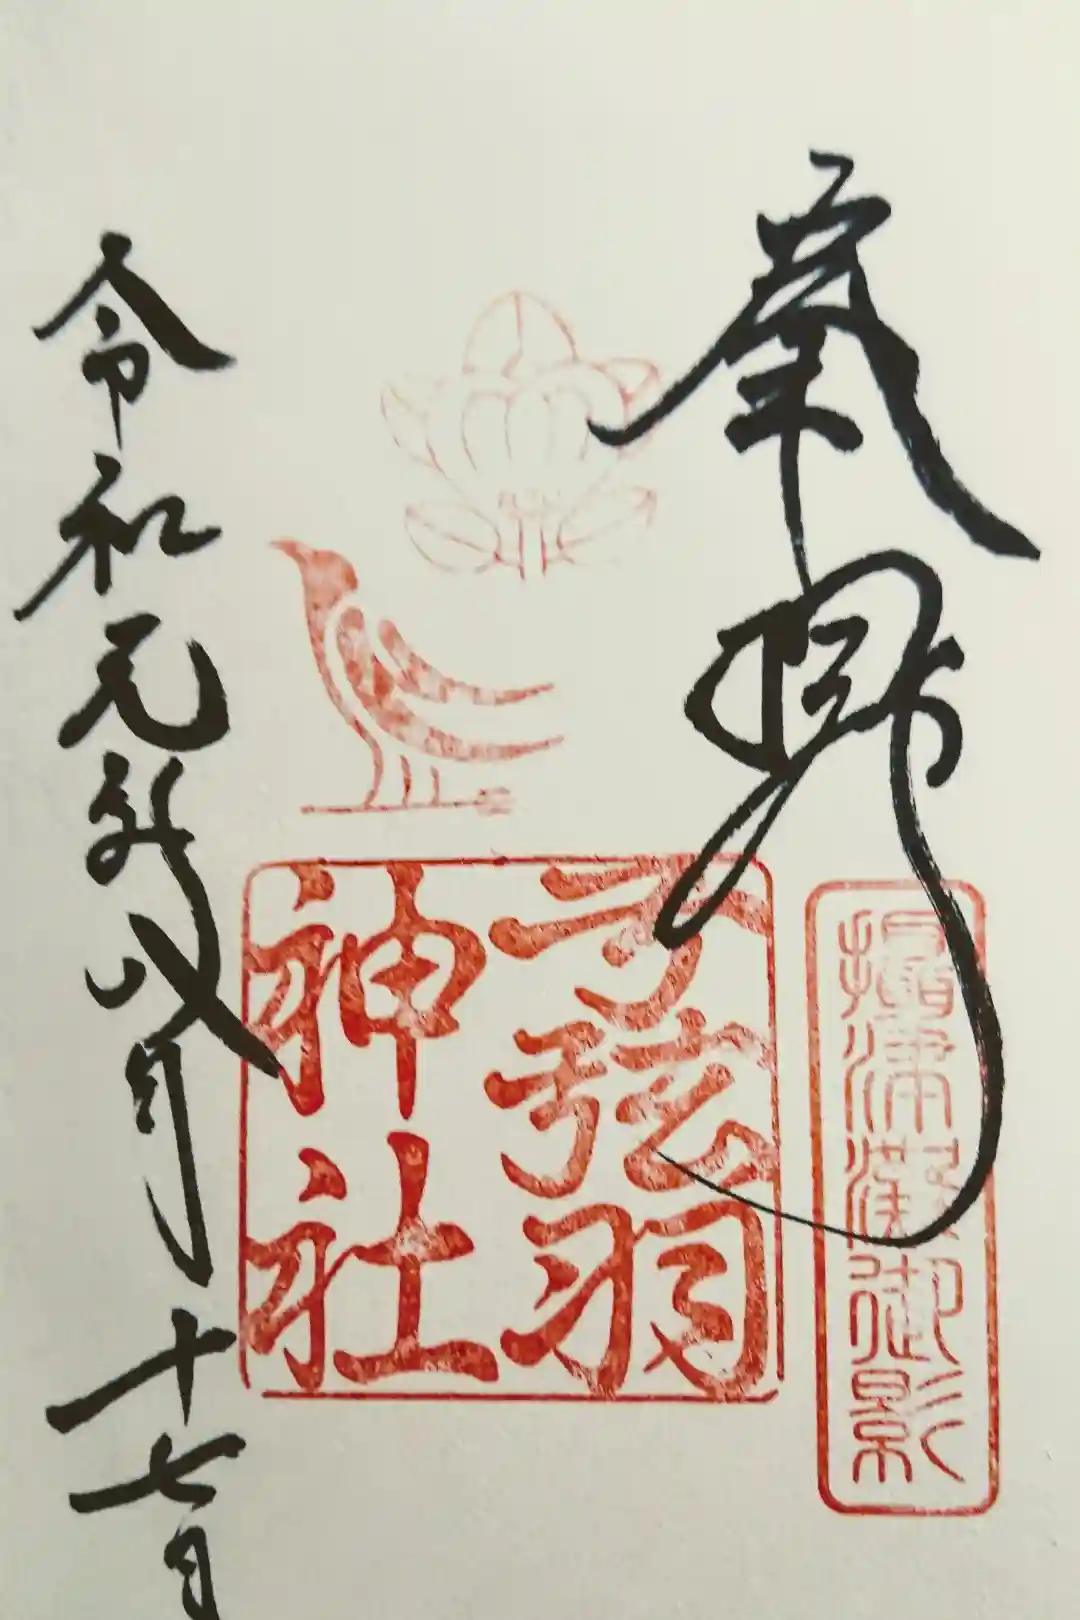 奉拝
摂津灘御影
弓弦羽
神社
令和元年八月十七日